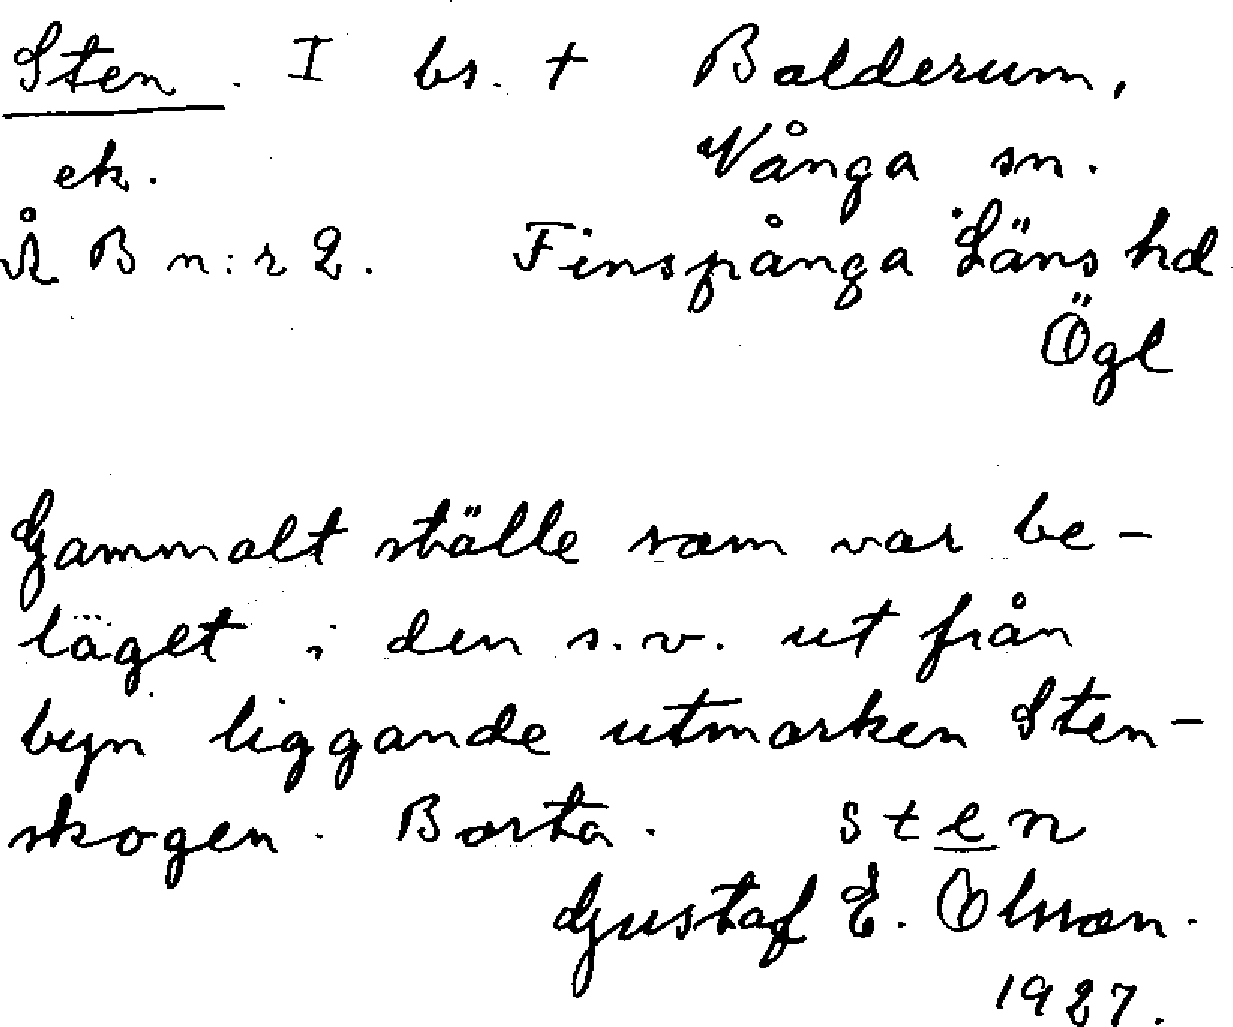 Sten. I bs. + Balderum,
ek. Vånga sn.
Å B n:r 2. Finspånga Läns hd
Ögl
Gammalt ställe som var be-
läget i den s.v. ut från
byn liggande utmarken Sten-
skogen. Borta. sten
Gustaf E. Olsson.
1927.